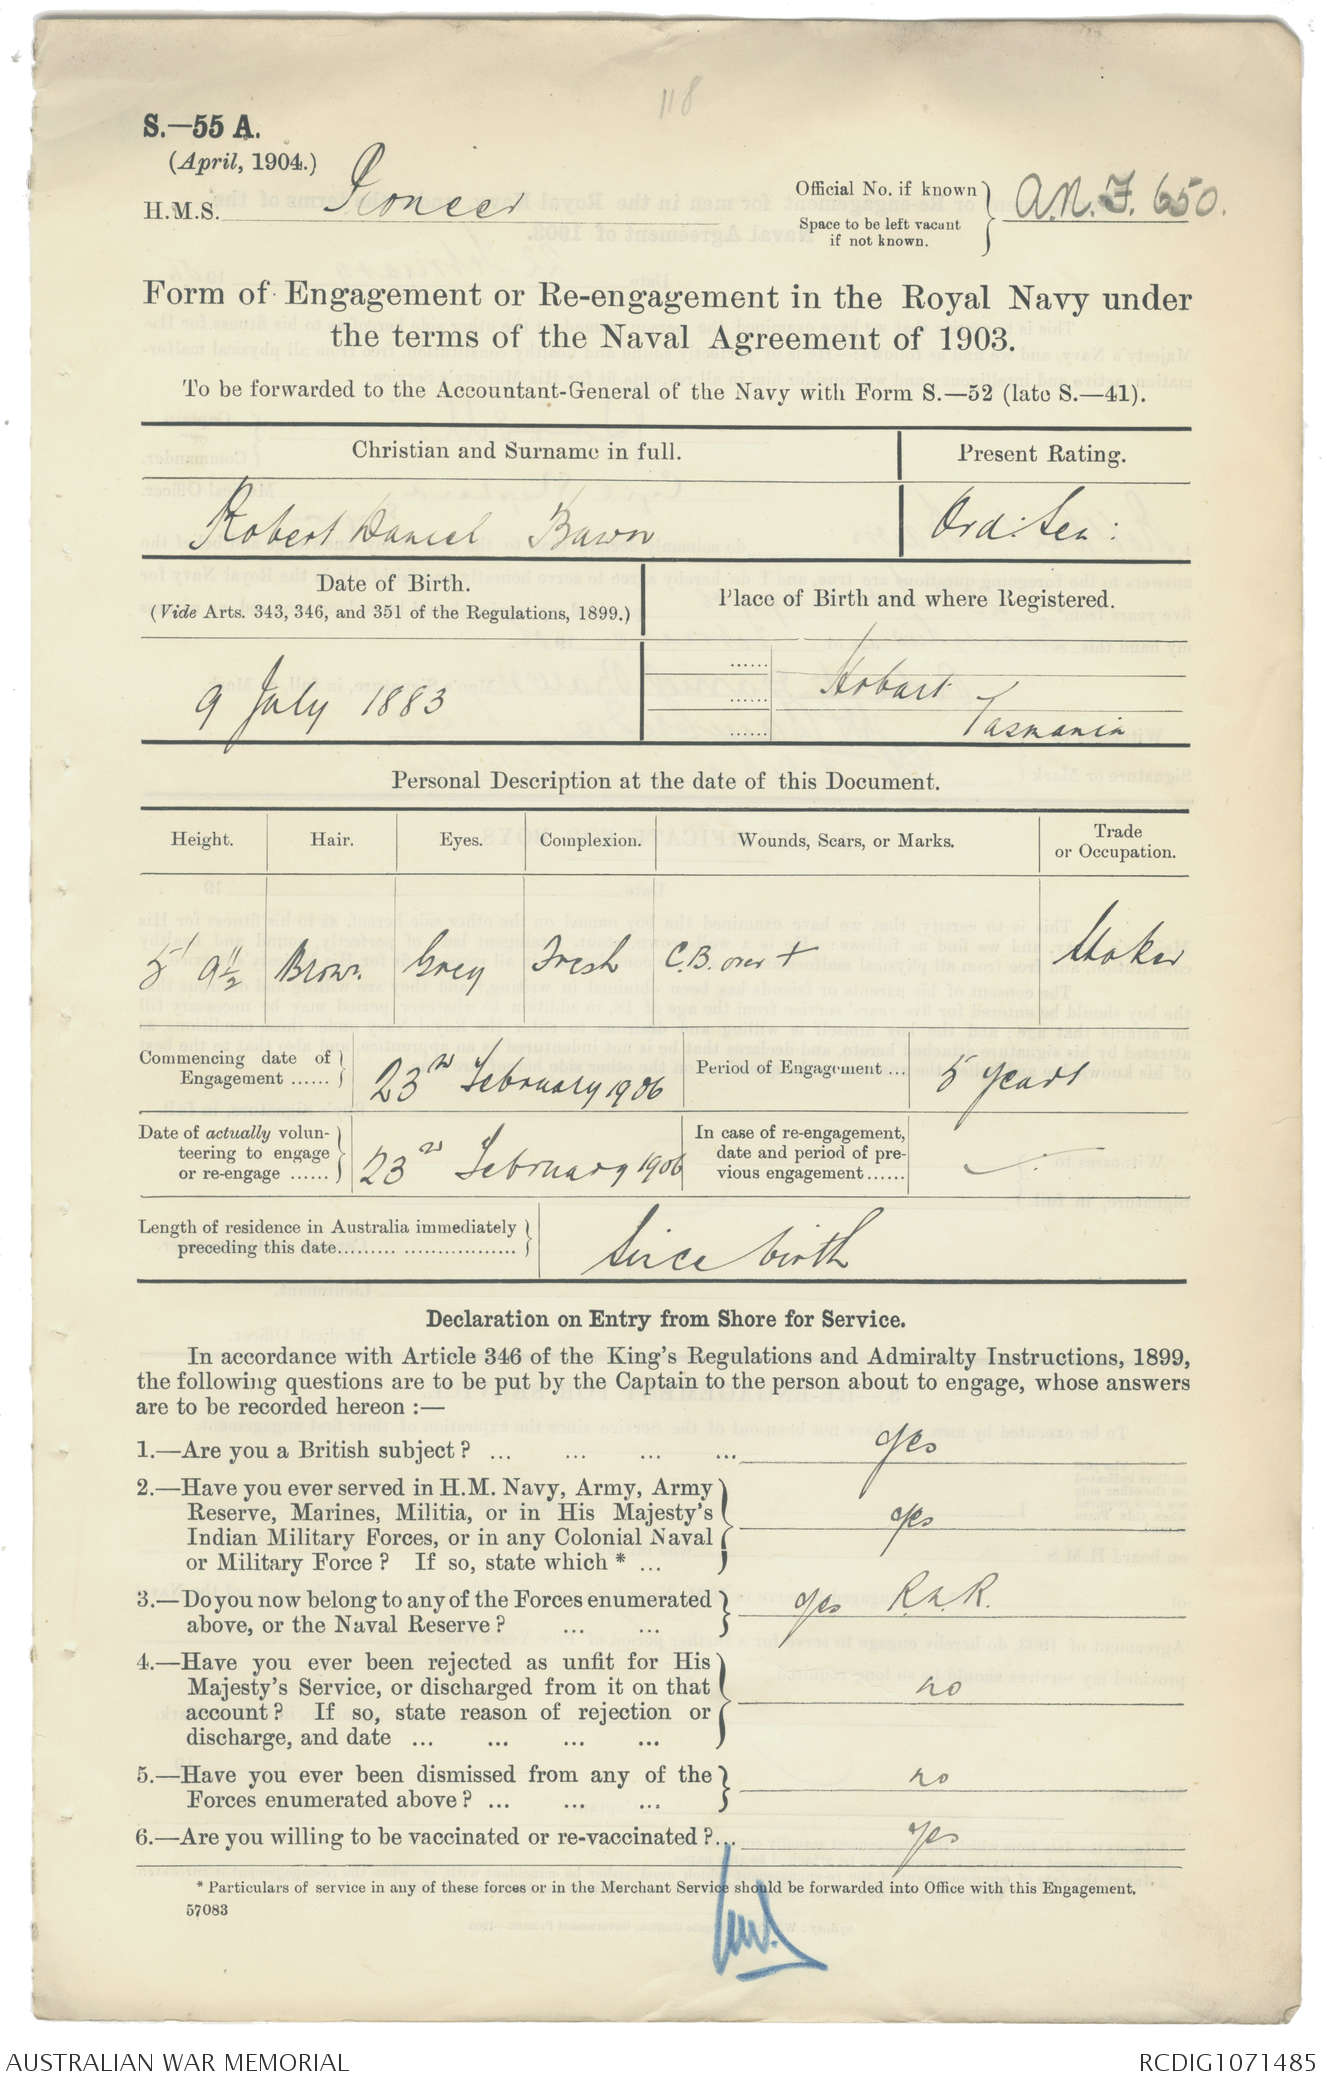 118
S.—55 A.
(April, 1904.)
H.M.S. Pioneer
Official No. if known
Space to be left vacant
if not known.
A.N.F. 650.
Form of Engagement or Re-engagement in the Royal Navy under
the terms of the Naval Agreement of 1903.
To be forwarded to the Accountant-General of the Navy with Form S.—52 (late S.—41).
Christian and Surname in full. Present Rating.
Robert Daniel Bawn Ord: Sea:
Date of Birth.
(Vide Arts. 343, 346, and 351 of the Regulations, 1899.)
Place of Birth and where Registered.
9 July 1883
Hobart
Tasmania
Personal Description at the date of this Document.
Height. Hair. Eyes. Complexion. Wounds, Scars, or Marks. Trade
or Occupation.
5' 9½" Brown Grey Fresh C.B. over + Stoker
Commencing date of
Engagement ......
23rd February 1906
Period of Engagement ... 5 years
Date of actually volun-
teering to engage
or re-engage ......
23rd February 1906
In case of re-engagement,
date and period of pre-
vious engagement......
Length of residence in Australia immediately
preceding this date......... ..................
Since birth
Declaration on Entry from Shore for Service.
In accordance with Article 346 of the King's Regulations and Admiralty Instructions, 1899,
the following questions are to be put by the Captain to the person about to engage, whose answers
are to be recorded hereon :—
1.—Are you a British subject? ... ... ... ... yes
2.—Have you ever served in H.M. Navy, Army, Army
Reserve, Marines, Militia, or in His Majesty's
Indian Military Forces, or in any Colonial Naval
or Military Force? If so, state which * ...
yes
3.—Do you now belong to any of the Forces enumerated
above, or the Naval Reserve? ... ...
yes R.N.R.
4.—Have you ever been rejected as unfit for His
Majesty's Service, or discharged from it on that
account? If so, state reason of rejection or
discharge, and date ... ... ... ...
no
5.—Have you ever been dismissed from any of the
Forces enumerated above? ... ... ...
no
6.—Are you willing to be vaccinated or re-vaccinated?... yes
* Particulars of service in any of these forces or in the Merchant Service should be forwarded into Office with this Engagement.
57083
AUSTRALIAN WAR MEMORIAL RCDIG1071485